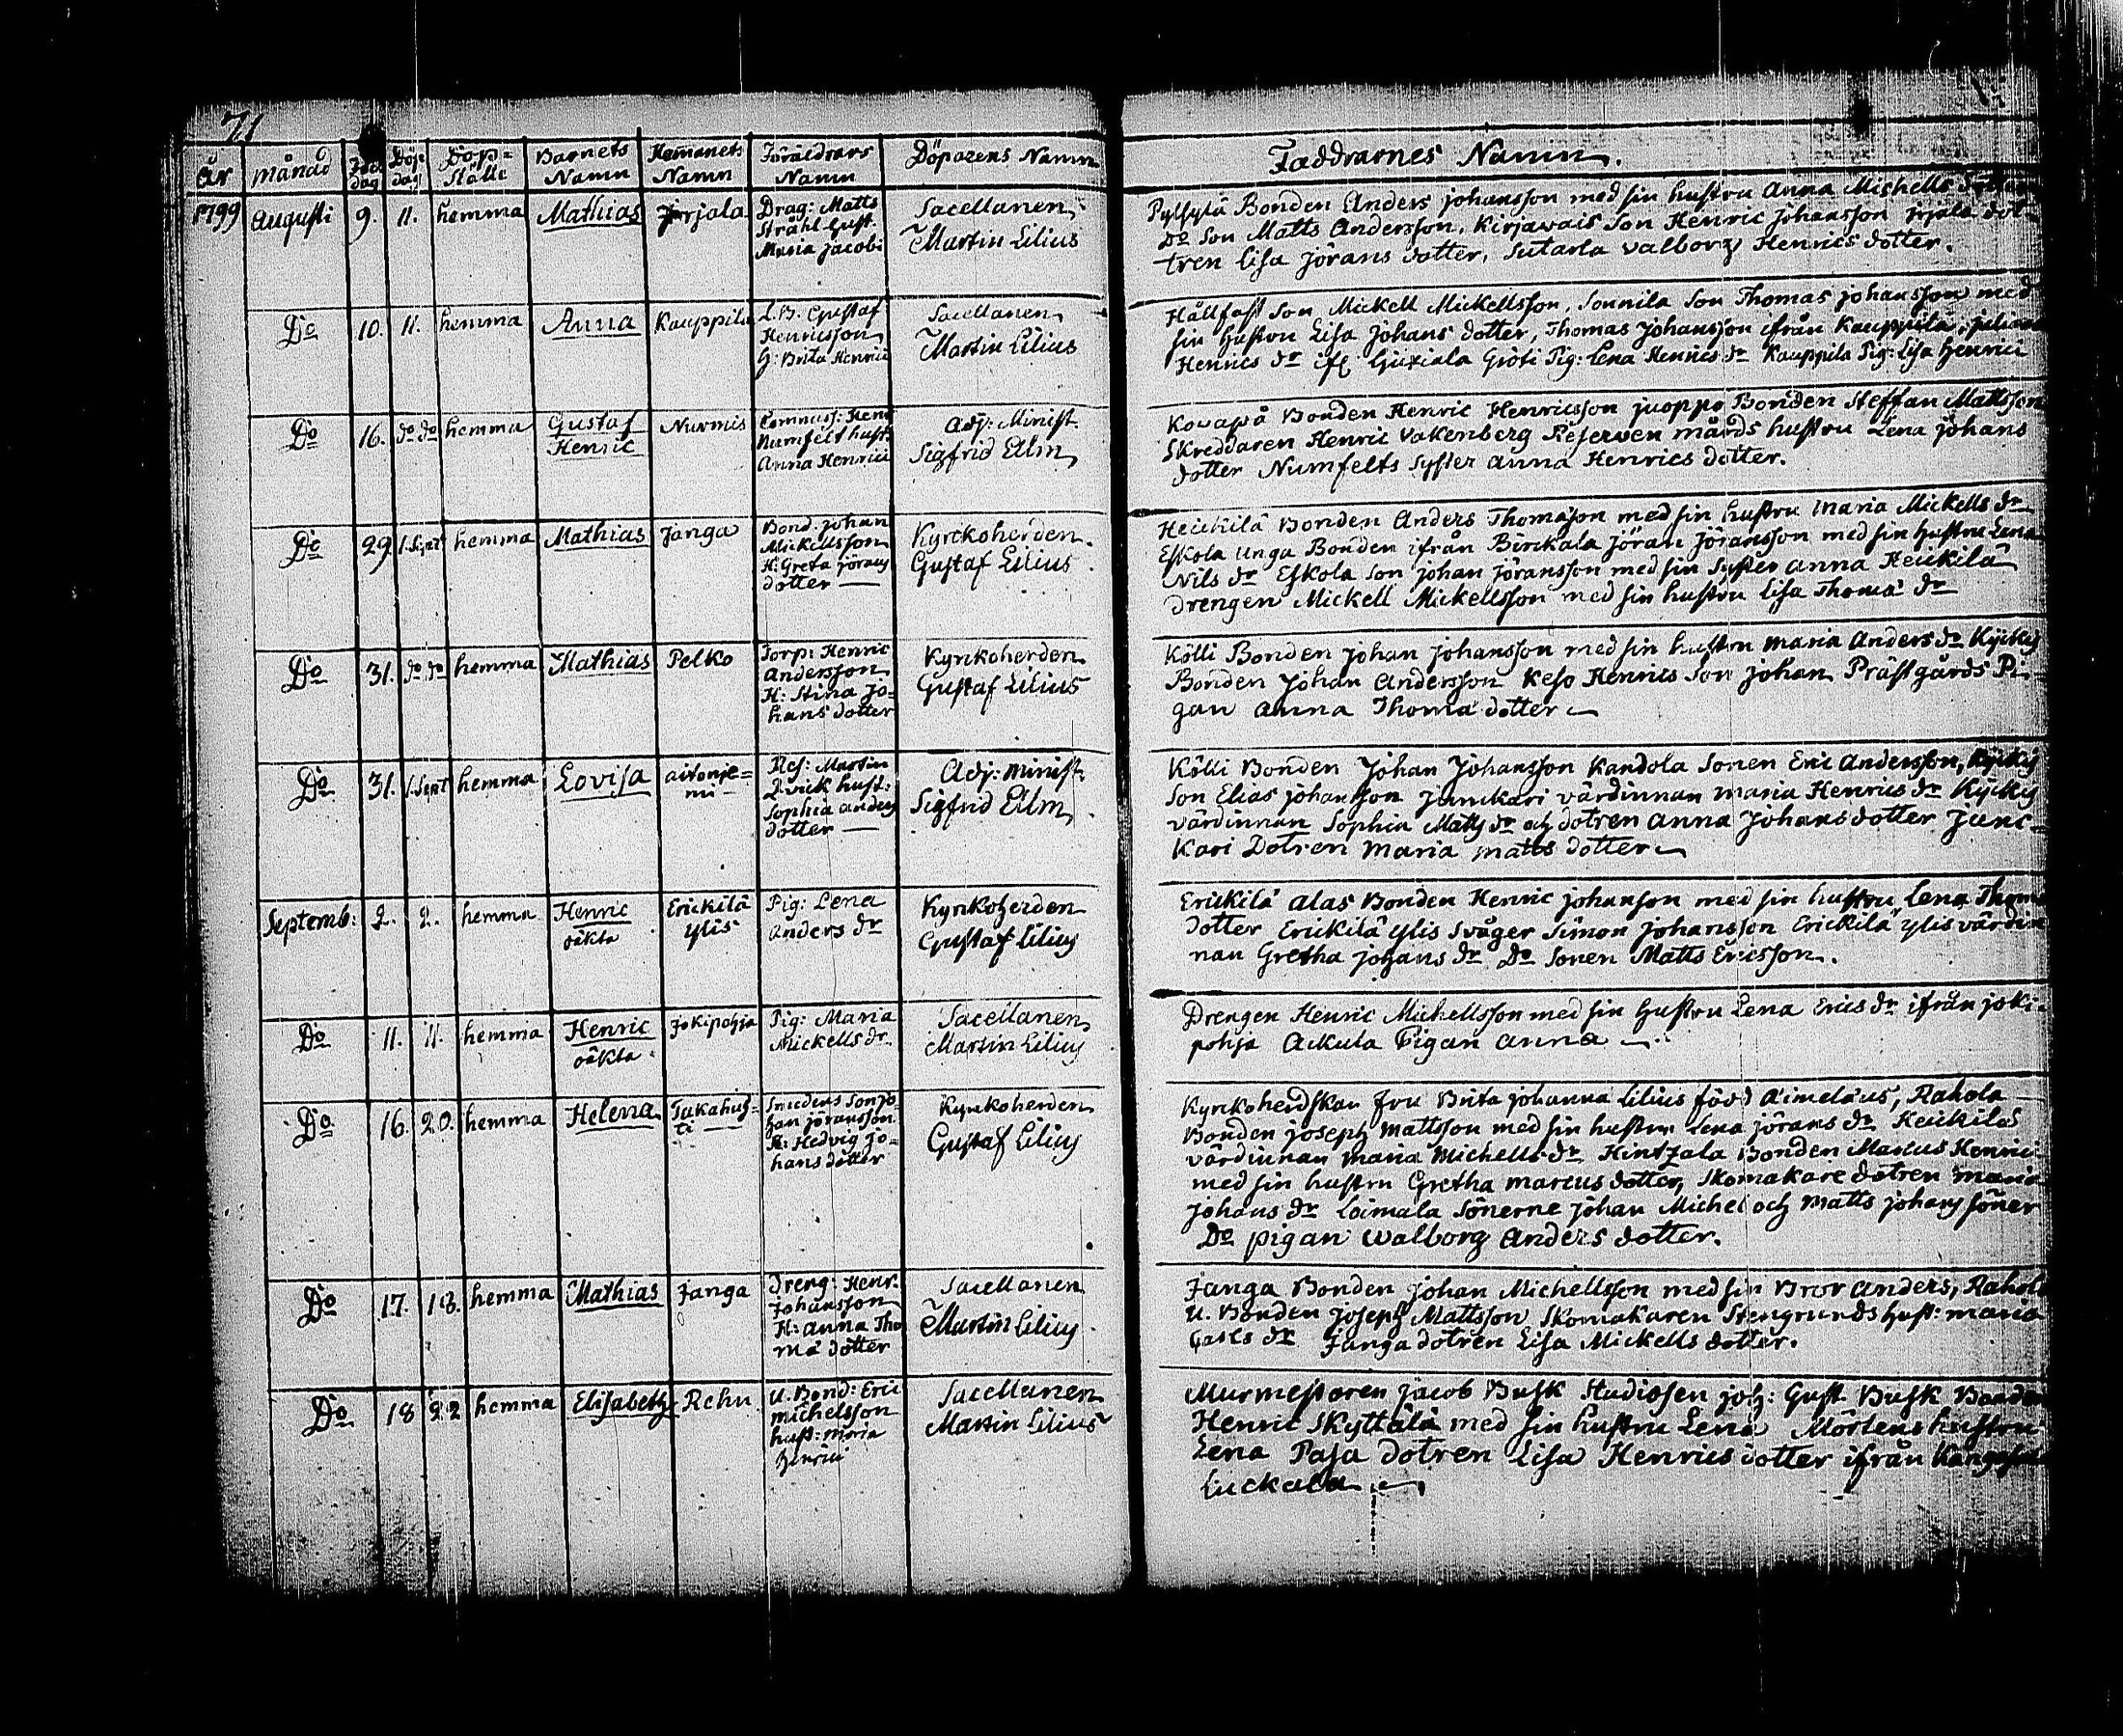 71
År månad Föd dag Döp dag Döp= Ställe Barnets Namn Hemanets Namn Föräldrars Namn Döparens Namn
Faddrarnes Namn.
1799 Augusti 9. 11. hemma Mathias Jrjala
Drag: Matts
Stråhl Hust.
Maria Jacobi
Sacellanen
Martin Lilius
Bonden Anders johansson med sin hustru Anna Michells
Do Son Matts Andersson, Kirjavais Son Henric johansson jrjala dot-
tren Lisa jörans dotter, Sutarla Valborg Henrics dotter.
Do 10. 11. hemma Anna Kauppila
L.B. Gustaf
Henricsson
H: Brita Henrici
Sacellanen
Martin Lilius
Hållfast Son Mickell Mickellsson, Sonnila Son Thomas johansson med
sin hustru Lisa Johans dotter, Thomas johansson ifrån Kauppila,
Henrics dr Pig: Lena Henrics dr Kauppila Pig: Lisa Henrici
Do 16. do do hemma Gustaf
Henric
Nurmis
Henr
Numfelt hust.
Anna Henrici
Adj: Minist.
Sigfrid Eilm
Kowapä Bonden Henric Henricsson juoppo Bonden Steffan Mattsson
Skreddaren Henric Vakenberg Reserven mårds hustru Lena johans
dotter Numfelts Syster Anna Henrics dotter.
Do 29. 1. Sept hemma Mathias Janga
Bond: johan
Mickellsson
H: Greta jörans
dotter
Kyrckoherden
Gustaf Lilius
Heickilä Bonden Anders Thomason med sin hustru Maria Mickells dr
Eskola Unga Bonden ifrån Birckala Jöran Jöransson med sin hustru Lena
Nils dr Eskola Son johan Jöransson med sin Syster Anna Heickilä
drengen Mickell Mickellsson med sin hustru Lisa Thoma dr
Do 31. do do hemma Mathias Pelko
Torp: Henric
Andersson
H: Stina jo-
hans dotter
Kyrkoherden
Gustaf Lilius
Kölli Bonden johan johansson med sin hustru Maria Anders dr Kyckys
Bonden Johan Andersson Keso Henrics Son johan Prästgårds Pi-
gan Anna Thoma dotter
Do 31. 1. Sept hemma Lovisa aitonie=
mi
Res: Martin
Qvick hust:
Sophia anders
dotter
Adj: Minist
Sigfrid Eilm
Kölli Bonden Johan Johansson Kandola Sonen Eric Andersson, Kycky
Son Elias johansson junckari värdinnan Maria Henrics dr Kyckys
värdinnan Sophia Matts dr och dotren Anna Johans dotter Junc-
kari Dotren Maria matts dotter
Septemb: 2. 2. hemma Henric
oäkta
Erickilä
ylis
Pig: Lena
Anders dr
Kyrkoherden
Gustaf Lilius
Erickilä alas Bonden Henric johanson med sin hustru Lena Thoma
dotter Erickilä ylis Svåger Simon johansson Erickilä ylis värdin
nan Gretha johans dr Do Sonen Matts Ericsson.
Do 11. 11. hemma Henric
oäkta
Jokipohja
Pig: Maria
Mickells dr.
Sacellanen
Martin Lilius
Drengen Henric Mickellsson med sin hustru Lena Erics dr ifrån joki-
pohja Aikula Pigan Anna
Do 16. 20. hemma Helena Takahus-
ti
Smedens Son jo-
han jöransson
H: Hedvig jo-
hans dotter
Kyrkoherden
Gustaf Lilius
Kyrckoherdskan fru Brita johanna Lilius född Aimelæus, Rahola
Bonden joseph mattsson med sin hustru Lena jörans dr Heickilä
värdinnan Maria Michells dr Hintzala Bonden Marcus Henric
med sin hustru Gretha marcus dotter, Skomakare dotren maria
johans dr Loimala Sönerne johan Michel och Matts johans Söner
Do pigan Walborg Anders dotter.
Do 17. 18. hemma Mathias Janga
Dreng: Henr.
Johansson
H: Anna Tho
mä dotter
Sacellanen
Martin Lilius
Janga Bonden johan Michellsson med sin Bror Anders, Rahola
U. Bonden joseph Mattsson Skomakaren Stengrunds hust: maria
Carls dr Janga dotren Lisa Mickells dotter.
Do 18 22 hemma Elisabeth Rehu
U. Bond: Eric
michelsson
hust: maria
henrici
Sacellanen
Martin Lilius
Murmestaren jacob Busk Studiosen joh: Gust Busk Bonden
Henric Skyttälä med sin hustru Lena Mörtens hustru
Lena Paja dotren Lisa Henrics dotter ifrån
Luckala